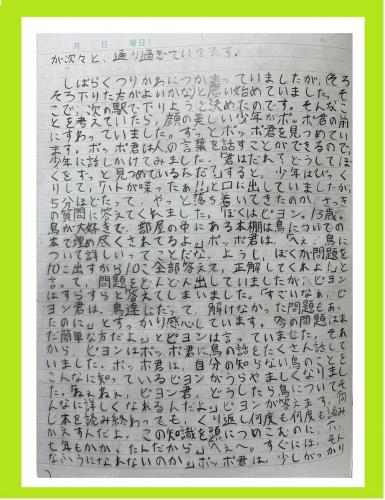 月 日 曜日(
が次々と、通り過ぎていきます。
しばらくつりかわにつか まっていましたが、(そろ
そろ下りた方がよいかな)と思い始めていました。そ
こで、次の駅で下りようと決めたのです。そんなこ
とを考えていたら、顔の美しい少年がポッポ君の前
にすわっていました。ずっとポッポ君を見つめてい
ます。ポッポ君は人の言葉を話すことができるので、
少年に話しかけてみました。「君はだれ?どうしてぼ
くをずっと見つめているんだ。」すると、少年はびっく
りして、「ハトが喋ったぁ!!」と口に出していましたが、
5分ほどたって、やっと落ち着いてきたのか、さっき
の質問に答えてくれました。「ぼくはピヨン。13歳。
鳥が大好きで、部屋の中にある本棚は鳥についての
本で埋め尽くされてるよ。」ポッポ君は、「へぇ、鳥に
ついて詳しいってことだな。ようし、ぼくが問題を
10こ出すから10こ全部答えて、正解してくれよ!」と
言って、問題をどんどん出していましたが、ピヨン
はすらすらと答えてしまいました。「すごいなぁ、ピ
ヨン君は。鳥達にだって、解けなかった問題もあっ
たのに」とすっかり感心しています。「今の問題はま
だ簡単な方だよ。」とピヨンは言っていました。それ
から、ピヨンはポッポ君に鳥の話をたくさん話して
いました。ポッポ君は、自分の知らない鳥のことを
こんなに知っているピヨンがうらやましくなりまし
た。「ねえねえ、ピヨン君、どうしたら鳥についてそ
んなに詳しくなれるんだよ。」ピヨンが答えます。「同
じ本を読み終わっても、くり返し何度も何度も読み
かえすんだよ。この知識を頭につめこむのに、六、
七年もかかったんだから。」「へぇ〜。すぐには、そん
なふうになれないのか。」ポッポ君は、少しがっかり